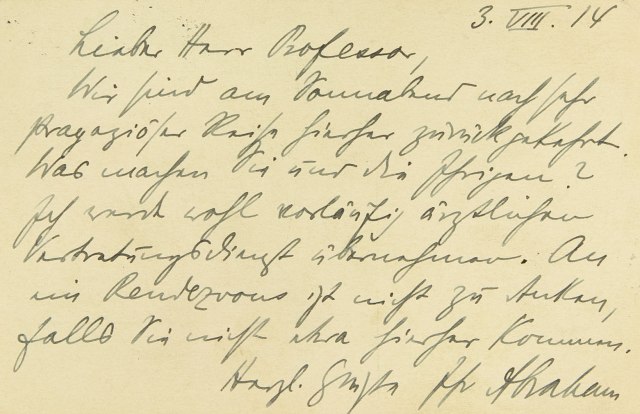 3. VIII. 14
Lieber Herr Professor,
Wir sind am Sonnabend nach sehr
strapaziöser Reise hierher zurückgekehrt.
Was machen Sie und die Ihrigen?
Ich werde wohl vorläufig ärztlichen
Vertretungsdienst übernehmen. An
ein Rendezvous ist nicht zu denken,
falls Sie nicht etwa hierher kommen.
Herzl. Grüße Ihr Abraham